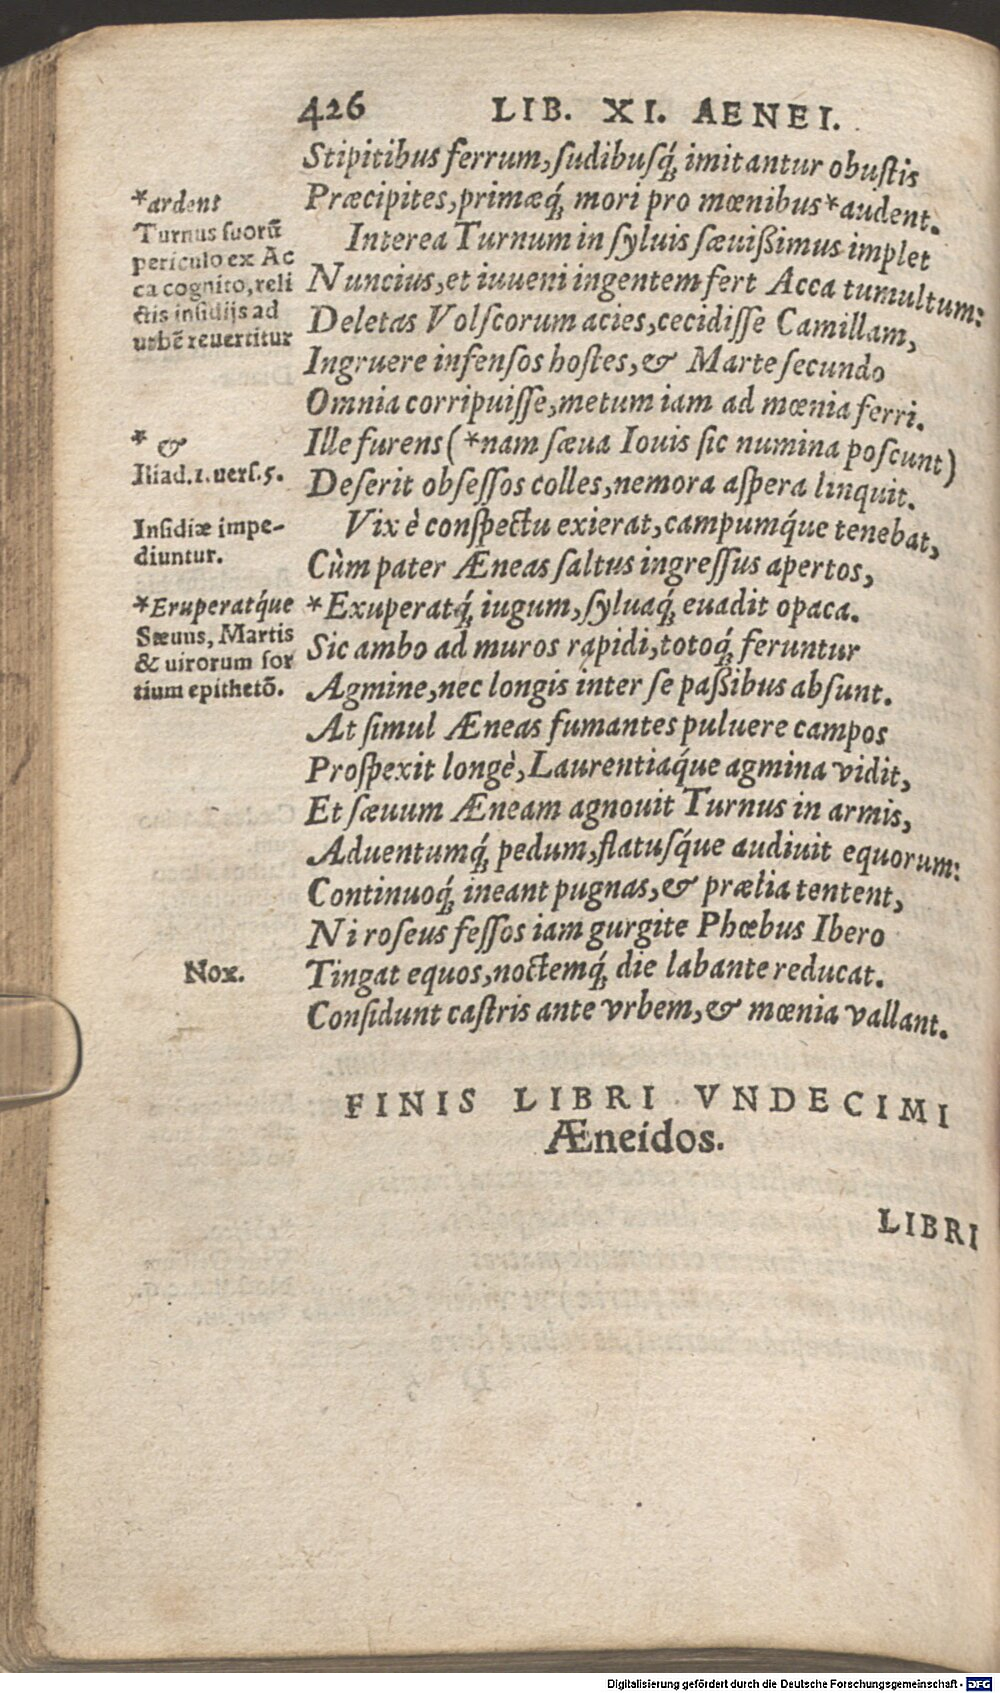 426 LIB. XI. AENEI.
Stipitibus ferrum, sudibusq́; imitantur obustis
Præcipites, primæq́; mori pro mœnibus *audent.
Interea Turnum in syluis sæuißimus implet
Nuncius, et iuueni ingentem fert Acca tumultum:
Deletas Volscorum acies, cecidisse Camillam,
Ingruere infensos hostes, & Marte secundo
Omnia corripuisse, metum iam ad mœnia ferri.
Ille furens (*nam sæua Iouis sic numina poscunt)
Deserit obsessos colles, nemora aspera linquit.
Vix è conspectu exierat, campumq́ue tenebat,
Cùm pater Æneas saltus ingressus apertos,
*Exuperatq́; iugum, syluaq́; euadit opaca.
Sic ambo ad muros rapidi, totoq́; feruntur
Agmine, nec longis inter se paßibus absunt.
At simul Æneas fumantes puluere campos
Prospexit longè, Laurentiaq́ue agmina vidit,
Et sæuum Æneam agnouit Turnus in armis,
Aduentumq́; pedum, flatusq́ue audiuit equorum:
Continuoq́; ineant pugnas, & prælia tentent,
Ni roseus fessos iam gurgite Phœbus Ibero
Tingat equos, noctemq́; die labante reducat.
Considunt castris ante vrbem, & mœnia vallant.
*ardent
Turnus suorũ
periculo ex Ac
ca cognito, reli
ctis insidijs ad
urbẽ reuertitur
* &
Iliad. 1. uers. 5.
Insidiæ impe-
diuntur.
*Eruperatq́ue
Sæuus, Martis
& uirorum for
tium epithetõ.
Nox.
FINIS LIBRI VNDECIMI
Æneidos.
LIBRI
Digitalisierung gefördert durch die Deutsche Forschungsgemeinschaft - DFG